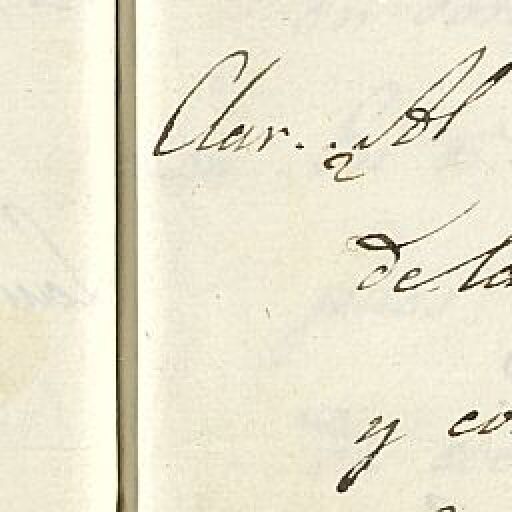 Clar.. Al
2
de la
y co